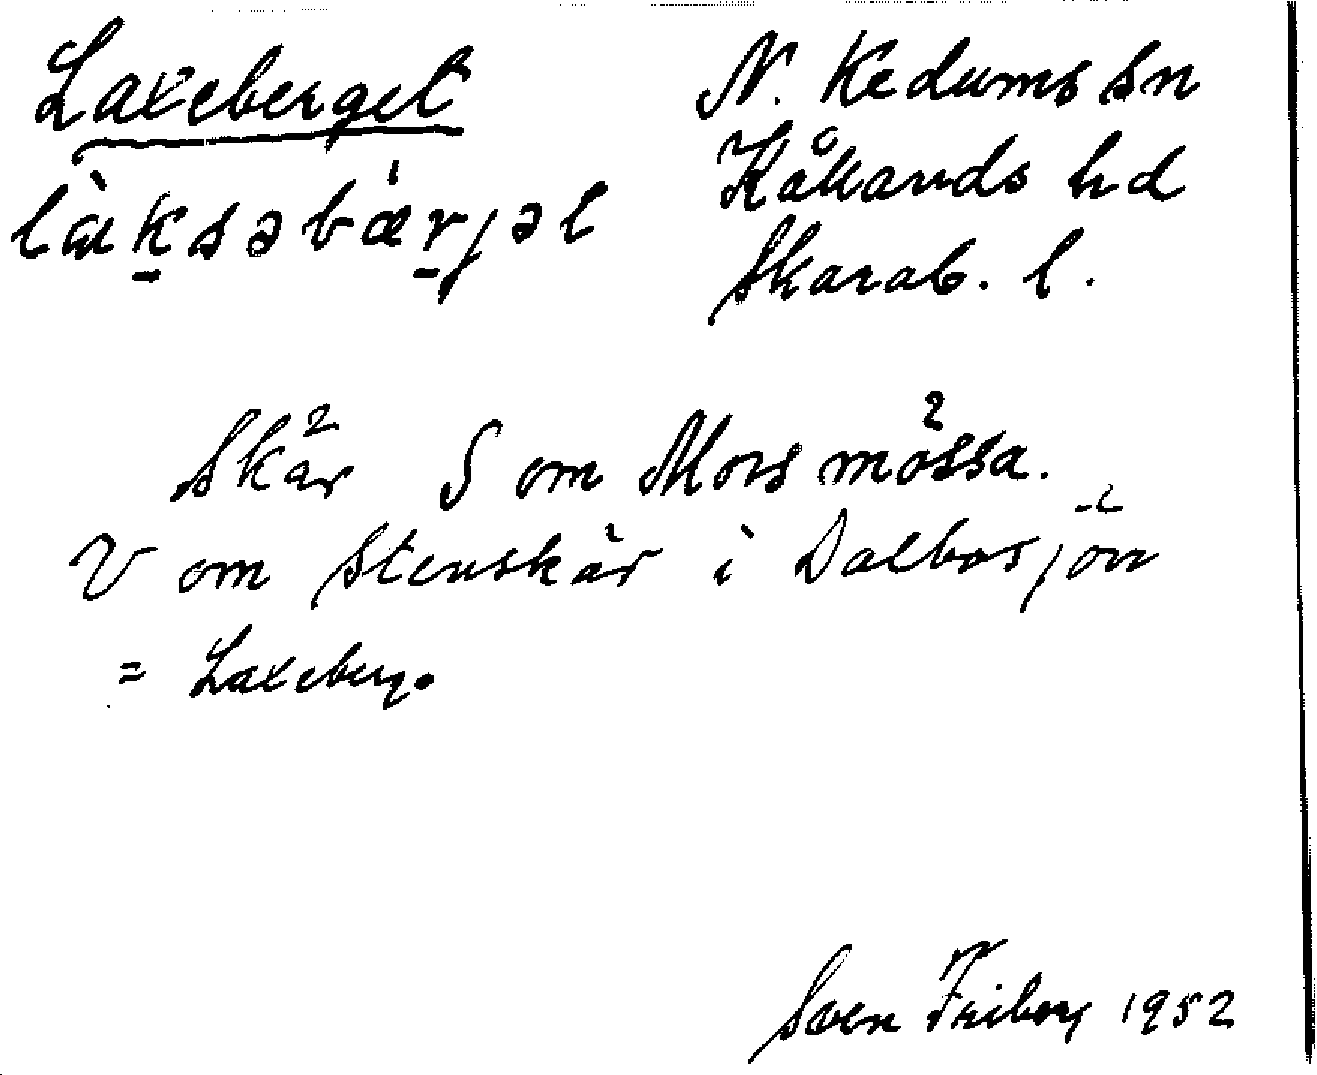 Laxeberget
làksəbæ̀rjəl
N. Kedums sn
Kållands hd
Skarab. l.
Skär S om Mors mössa.
V om Stenskär i Dalbosjön
= Laxeberg.
Sven Friberg 1952